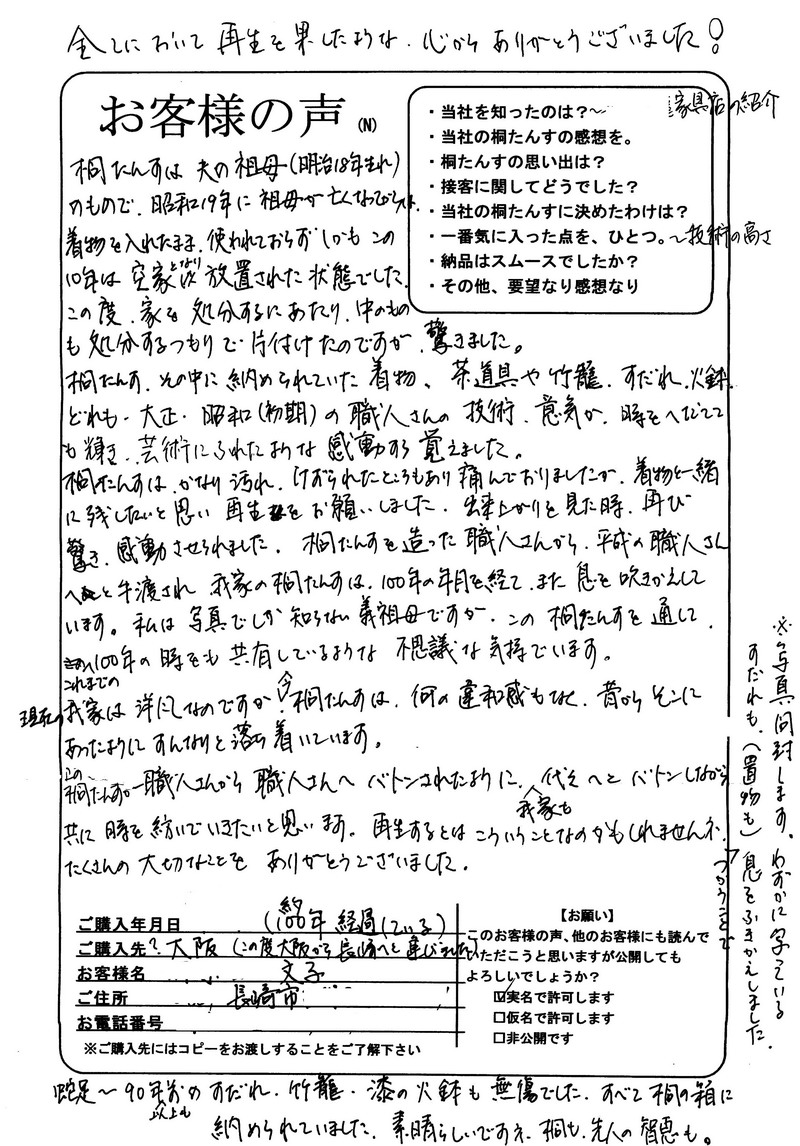 全てにおいて再生を果したような.心からありがとうございました!
お客様の声(N)
・当社を知ったのは?～家具店の紹介
・当社の桐たんすの感想を。
・桐たんすの思い出は?
・接客に関してどうでした?
・当社の桐たんすに決めたわけは?
・一番気に入った点を、ひとつ。～技術の高さ
・納品はスムースでしたか?
・その他、要望なり感想なり
桐たんすは 夫の祖母(明治18年生れ)
のもので、昭和19年に祖母が亡くなってからは、
着物を入れたまま、使われておらず しかもこの
10年は 空家となり 放置された状態でした。
この度、家を処分するにあたり、中のもの
も処分するつもりで片付けたのですが、驚きました。
桐たんす、その中に納められていた着物、茶道具や竹籠、すだれ、火鉢、
どれも、大正・昭和(初期)の職人さんの技術、意気が、時をへだてて
も輝き、芸術にふれたような感動する覚えました。
桐たんすは、かなり汚れ、けずられたところもあり痛んでおりましたが、着物と一緒
に残したいと思い 再生をお願いしました。出来上がりを見た時、再び
驚き、感動させられました。桐たんすを造った職人さんから、平成の職人さん
へと手渡され 我家の桐たんすは、100年の年月を経て、また息を吹きかえして
います。私は写真でしか知らない義祖母ですが、この桐たんすを通して、
これまでの100年の時をも共有しているような不思議な気持でいます。
現在の我家は洋風なのですが、今、桐たんすは、何の違和感もなく、昔からそこに
あったようにすんなりと落ち着いています。
この桐たんすが職人さんから職人さんへバトンされたように、我家も代々へとバトンしながら
共に時を紡いでいきたいと思います。再生するとはこういうことなのかもしれませんネ。
たくさんの大切なことを ありがとうございました。
※写真同封します。わずかに写っている
すだれも、(置物も)息をふきかえしました。
つかうことで
ご購入年月日 (約100年経過している)
ご購入先?大阪(この度大阪から長崎へと運びました)
お客様名 文子
ご住所 長崎市
お電話番号
※ご購入先にはコピーをお渡しすることをご了解下さい
【お願い】
このお客様の声、他のお客様にも読んで
いただこうと思いますが公開しても
よろしいでしょうか?
☑実名で許可します
□仮名で許可します
□非公開です
蛇足～90年以上も前のすだれ、竹籠、漆の火鉢も無傷でした。すべて桐の箱に
納められていました。素晴らしいですネ、桐も、先人の智恵も。